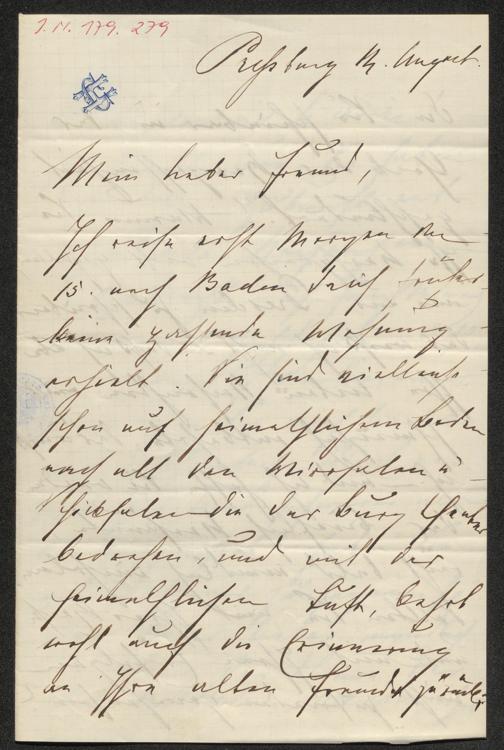 J. N. 179. 279
Preßburg 14. August.
Mein lieber Freund,
Ich reise erst Morgen den
15. nach Baden da ich früher
keine passende Wohnung
erhielt. Sie sind vielleicht
schon auf heimathlichem Boden
nach all den Wirrsalen u
Schicksalen die der Burg
bedrohen, und mit der
heimathlichen Luft, kehrt
wohl auch die Erinnerung
an Ihre alten Freunde zurück,